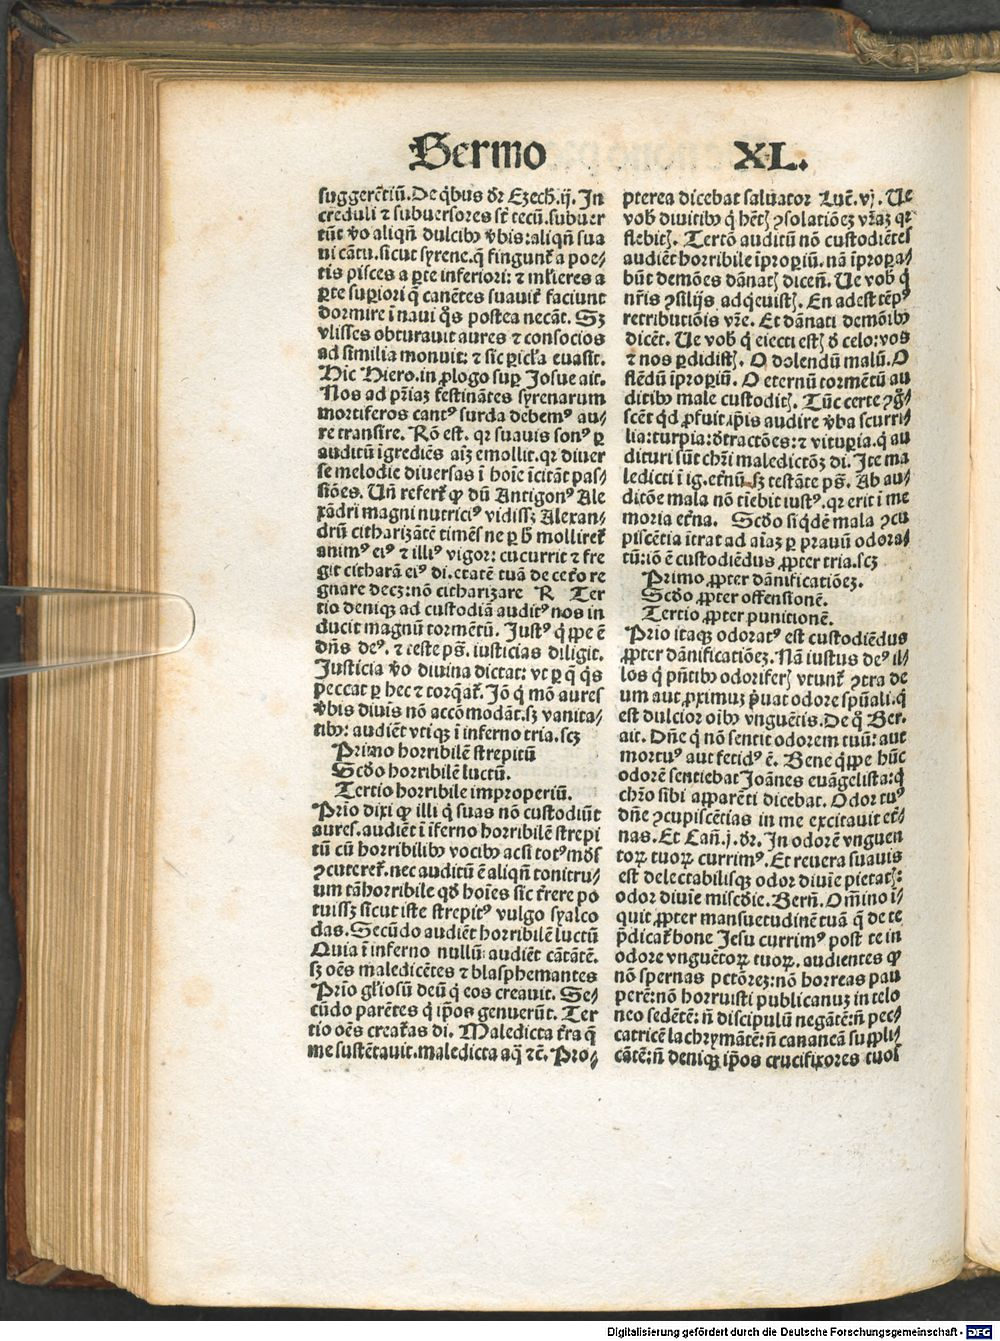 Sermo XL.
suggerẽtiũ. De q̃bus dr̃ Ezech̃. ij. In
creduli ⁊ subuersores st̃ tecũ. subuer
tũt v̾o aliqñ dulcibꝰ v̾bis: aliqñ sua
ui cãtu. sicut syrene. q̃ fingunt̃ a poe⸗
tis pisces a ꝑte inferiori: ⁊ ml̃ieres a
ꝑte suꝑiori q̃ canẽtes suauit̃ faciunt
dormire ĩ naui q̃s postea necãt. Sꝫ
vlisses obturauit aures ⁊ consocios
ad similia monuit: ⁊ sic ꝑicl̃a euasit.
Hic Hiero. in ꝓlogo suꝑ Josue ait.
Nos ad pr̃iaꝫ festinãtes syrenarum
mortiferos cantꝰ surda debemꝰ au⸗
re transire. Rõ est. qꝛ suauis sonꝰ ꝑ
auditũ ĩgrediẽs aĩꝫ emollit. qꝛ diuer
se melodie diuersas ĩ hoĩe ĩcitãt pas⸗
siões. Uñ refert̃ ꝙ dũ Antigonꝰ Ale
xãdri magni nutriciꝰ vidissꝫ Alexan⸗
drũ citharizãte timẽs ne ꝑ h̾ molliret̃
animꝰ eiꝰ ⁊ illiꝰ vigor: cucurrit ⁊ fre
git citharã eiꝰ di. etatẽ tuã de cet̃o re
gnare decꝫ: nõ citharizare R Ter
tio deniqꝫ ad custodiã auditꝰ nos in
ducit magnũ tormẽtũ. Justꝰ q̃ꝑpe ẽ
dñs deꝰ. ⁊ teste ps̃. iusticias diligit.
Justicia v̾o diuina dictat: vt ꝑ q̃ q̃s
peccat ꝑ hec ⁊ torq̃at̃. Jõ q̃ mõ aures
v̾bis diuis nõ accõmodãt. sꝫ vanita⸗
tibꝰ: audiẽt vtiqꝫ ĩ inferno tria. scꝫ
Primo horribilẽ strepitũ
Scd̾o horribilẽ luctũ.
Tertio horribile improperiũ.
Prĩo dixi ꝙ illi q̃ suas nõ custodiũt
aures. audiẽt ĩ ĩferno horribilẽ strepi
tũ cũ horribilibꝰ vocibꝰ acsi totꝰ mũdꝰ
ꝯcuteret̃. nec auditũ ẽ aliqñ tonitru⸗
um tãhorribile qd̾ hoĩes sic t̃rere po
tuissꝫ sicut iste strepitꝰ vulgo syalco
das. Secũdo audiẽt horribilẽ luctũ
Quia ĩ inferno nullũ audiẽt cãtãtẽ.
sꝫ oẽs maledicẽtes ⁊ blasphemantes
Prĩo gl̃iosũ deũ q̃ eos creauit. Se⸗
cũdo parẽtes q̃ ip̃os genuerũt. Ter
tio oẽs creat̃as di. Maledicta t̃ra q̃
me sustẽtauit. maledicta aq̃ ⁊c̃. Pro⸗
pterea dicebat saluator Luc̃. vj. Ue
vob̃ diuitibꝰ q̃ hẽtꝭ ꝯsolatiõeꝫ vr̃aꝫ qꝛ
flebitꝭ. Tertõ auditũ nõ custodiẽtes
audiẽt horribile ĩproꝑiũ. nã ĩproꝑa⸗
bũt demões dãnatꝭ dicen̄. Ue vob̃ q̃
nr̃is ꝯsilijs adq̃euistꝭ. En adest tẽpꝰ
retributiõis vr̃e. Et dãnati demõibꝰ
dicẽt. Ue vob̃ q̃ eiecti estꝭ d̾ celo: vos
⁊ nos ꝑdidistꝭ. O dolendũ malũ. O
flẽdũ ĩproꝑiũ. O eternũ tormẽtũ au
ditibꝰ male custoditꝭ. Tũc certe ꝯg̾⸗
scẽt qd̾ ꝓfuit ip̃is audire v̾ba scurri⸗
lia: turpia: d̾tractões: ⁊ vituꝑia. q̃ au
dituri sũt chr̃i maledictõꝫ di. Ite ma
ledicti ĩ ig. et̃nũ. sꝫ testãte ps̃. Ab au⸗
ditõe mala nõ tĩebit iustꝰ. qꝛ erit ĩ me
moria et̃na. Scd̾o siq̃dẽ mala ꝯcu
piscẽtia ĩtrat ad aĩaꝫ ꝑ prauũ odora⸗
tũ: iõ ẽ custodiẽdus ꝓpter tria. scꝫ
Primo ꝓpter dãnificatiõeꝫ.
Scd̾o ꝓpter offensionẽ.
Tertio ꝓpter punitionẽ.
Prĩo itaqꝫ odoratꝰ est custodiẽdus
ꝓpter dãnificatiõeꝫ. Nã iustus deꝰ il⸗
los q̃ pñtibꝰ odoriferꝭ vtunt̃ ꝯtra de
um aut ꝓximuꝫ p̾uat odore spũali. q̃
est dulcior oĩbꝰ vnguẽtis. De q̃ Ber.
ait. Dñe q̃ nõ sentit odorem tuũ: aut
mortuꝰ aut fetidꝰ ẽ. Bene q̃ꝑpe hũc
odorẽ sentiebat Joãnes euãgelista: q̃
chr̃o sibi apparẽti dicebat. Odor tuꝰ
dñe ꝯcupiscẽtias in me excitauit et̃⸗
nas. Et Cañ. j. dr̃. In odorẽ vnguen
toꝝ tuoꝝ currimꝰ. Et reuera suauis
est delectabilisqꝫ odor diuĩe pietatꝭ:
odor diuĩe misc̃die. Berñ. Om̃ino i⸗
quit ꝓpter mansuetudinẽ tuã q̃ de te
p̃dicat̃ bone Jesu currimꝰ post te in
odore vnguẽtoꝝ tuoꝝ. audientes ꝙ
nõ spernas pctõreꝫ: nõ horreas pau
perẽ: nõ horruisti publicanuꝫ in telo
neo sedẽtẽ: ñ discipulũ negãtẽ: ñ pec⸗
catricẽ lachrymãtẽ: ñ cananeã suppli⸗
cãtẽ: ñ deniqꝫ ip̃os crucifixores tuos
Digitalisierung gefördert durch die Deutsche Forschungsgemeinschaft - DFG